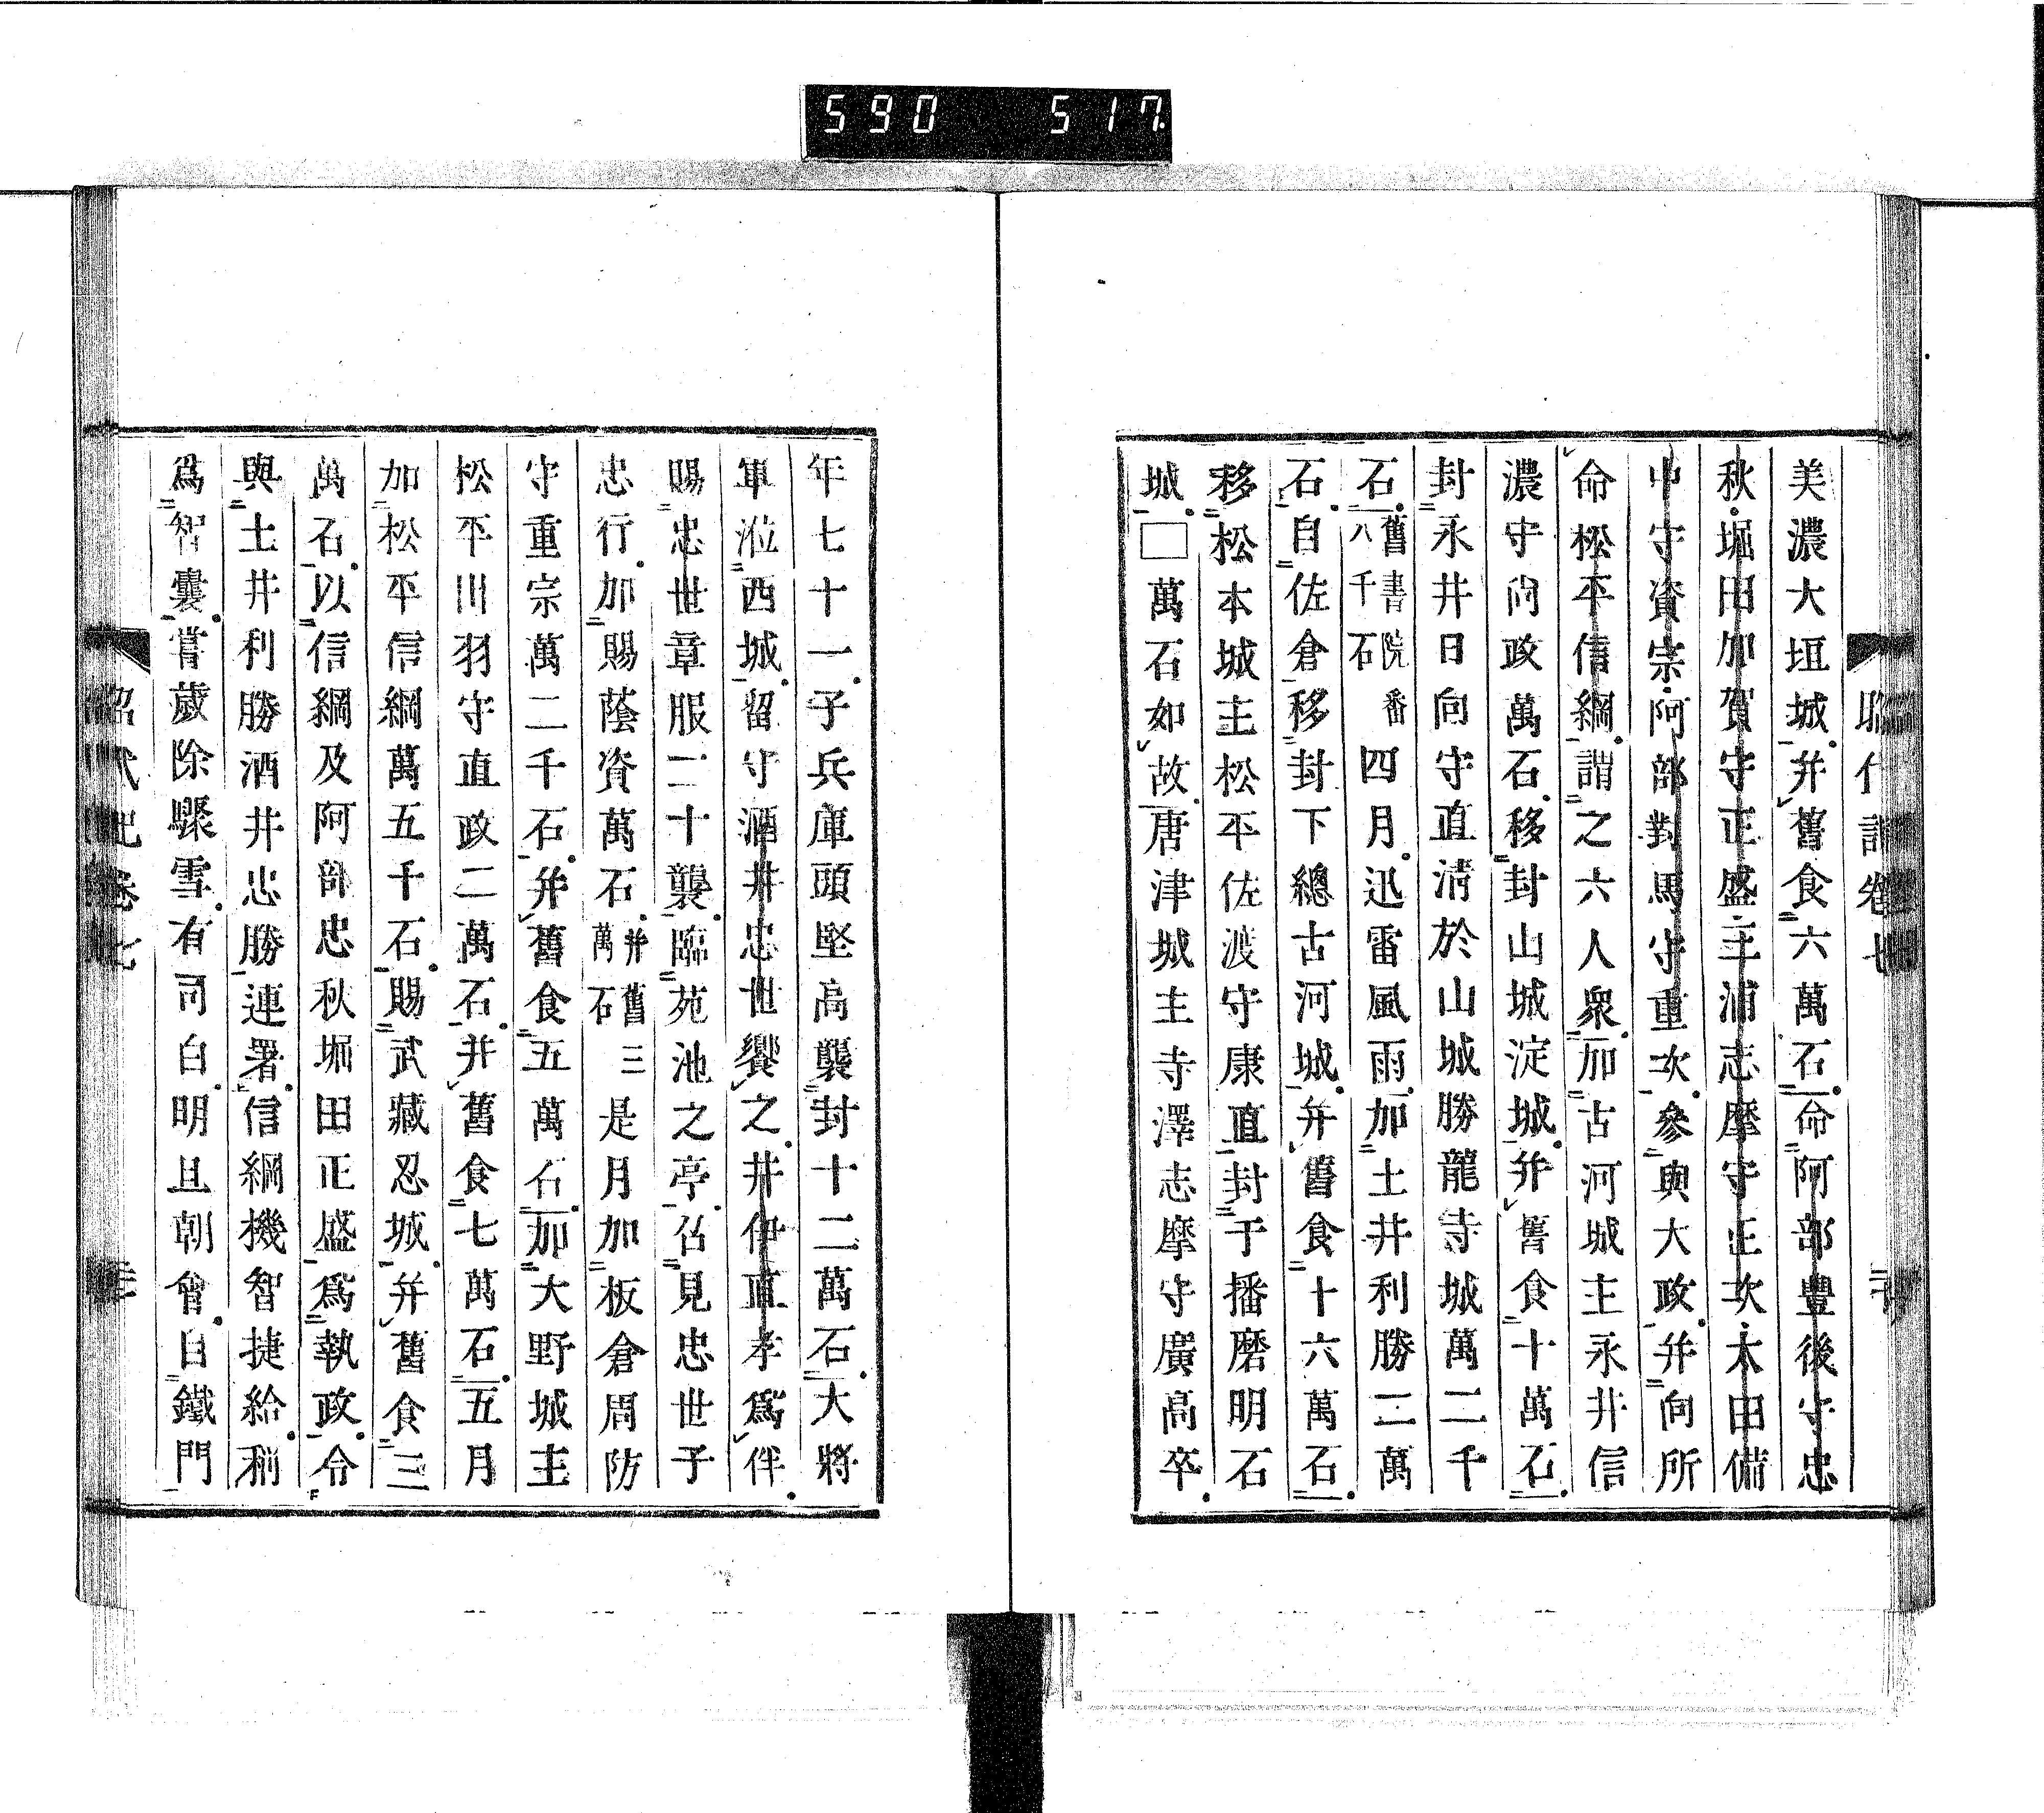 590 517
美濃大垣城并舊食六萬石命阿部豐後守忠
秋堀田加賀守正盛三浦志摩守正次太田備
中守資宗阿部對馬守重次參與大政并向所
命松平信綱謂之六人衆加古河城主永井信
濃守尚政萬石移封山城淀城并舊食十萬石
封永井日向守直清於山城勝龍寺城萬二千
石舊書院番八千石四月迅雷風雨加土井利勝二萬
石自佐倉移封下總古河城并舊食十六萬石
移松本城主松平佐渡守康直封于播磨明石
城□萬石如故唐津城主寺澤志摩守廣高卒
年七十一子兵庫頭堅高襲封十二萬石大將
軍涖西城留守酒井忠世饗之井伊直孝爲伴
賜忠世章服二十襲臨苑池之亭召見忠世子
忠行加賜蔭資萬石并舊三萬石是月加板倉周防
守重宗萬二千石并舊食五萬石加大野城主
松平出羽守直政二萬石并舊食七萬石五月
加松平信綱萬五千石賜武藏忍城并舊食三
萬石以信綱及阿部忠秋堀田正盛爲執政令
與土井利勝酒井忠勝連署信綱機智捷給稱
爲智囊嘗歲除驟雪有司白明旦朝會自鐵門